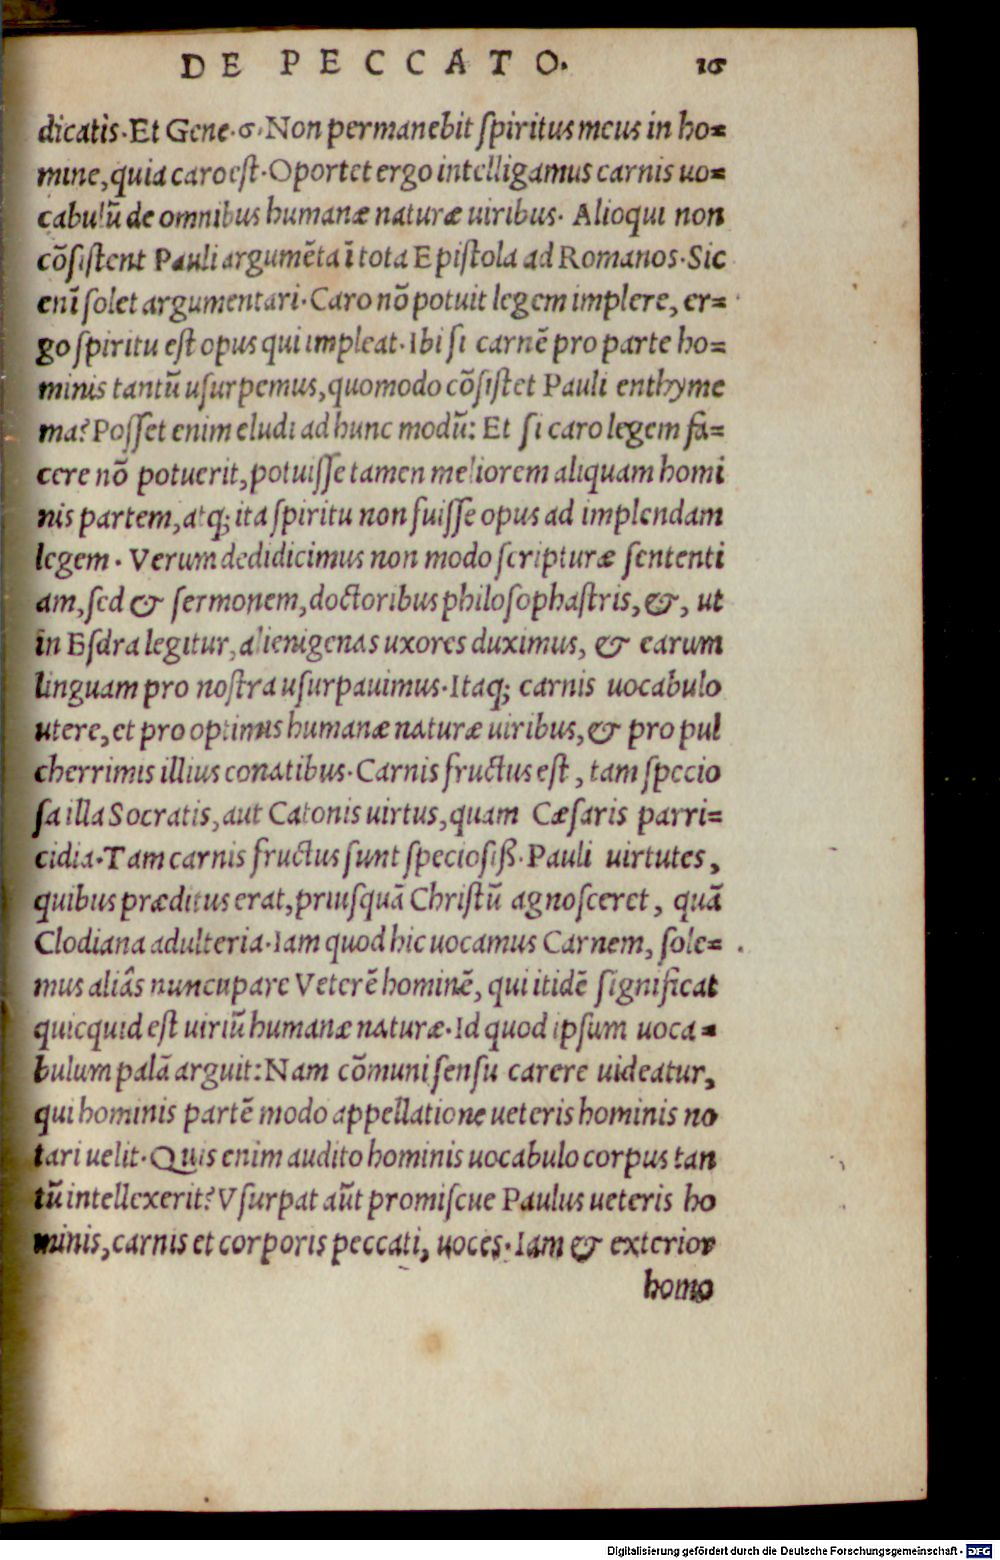 DE PECCATO. 16
dicatis. Et Gene. 6. Non permanebit spiritus meus in ho=
mine, quia caro est. Oportet ergo intelligamus carnis uo=
cabulũ de omnibus humanæ naturæ uiribus. Alioqui non
cõsistent Pauli argumẽta ĩ tota Epistola ad Romanos. Sic
enĩ solet argumentari. Caro nõ potuit legem implere, er=
go spiritu est opus qui impleat. Ibi si carnẽ pro parte ho=
minis tantũ usurpemus, quomodo cõsistet Pauli enthyme
ma? Posset enim eludi ad hunc modũ: Et si caro legem fa=
cere nõ potuerit, potuisse tamen meliorem aliquam homi
nis partem, atq; ita spiritu non fuisse opus ad implendam
legem. Verum dedidicimus non modo scripturæ sententi
am, sed & sermonem, doctoribus philosophastris, &, ut
in Esdra legitur, alienigenas uxores duximus, & earum
linguam pro nostra usurpauimus. Itaq; carnis uocabulo
utere, et pro optimis humanæ naturæ uiribus, & pro pul
cherrimis illius conatibus. Carnis fructus est, tam specio
sa illa Socratis, aut Catonis uirtus, quam Cæsaris parri=
cidia. Tam carnis fructus sunt speciosiß. Pauli uirtutes,
quibus præditus erat, priusquã Christũ agnosceret, quã
Clodiana adulteria. Iam quod hic uocamus Carnem, sole=
mus aliâs nuncupare Veterẽ hominẽ, qui itidẽ significat
quicquid est uiriũ humanæ naturæ. Id quod ipsum uoca=
bulum palã arguit: Nam cõmuni sensu carere uideatur,
qui hominis partẽ modo appellatione ueteris hominis no
tari uelit. Quis enim audito hominis uocabulo corpus tan
tũ intellexerit? Vsurpat aũt promiscue Paulus ueteris ho
minis, carnis et corporis peccati, uoces. Iam & exterior
homo
Digitalisierung gefördert durch die Deutsche Forschungsgemeinschaft - DFG